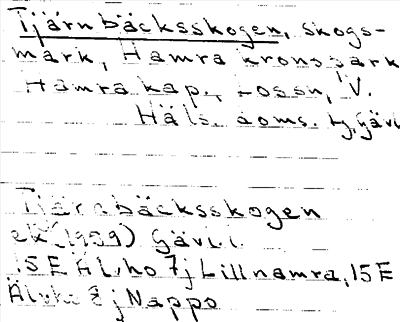 Tjärnbäcksskogen, skogs-
mark, Hamra kronopark
Hamra kap., Lossn, V.
Häls. doms. tg, Gävl
Tjärnbäcksskogen
ek (1959) Gävl l.
15E Älvho 7j Lillhamra, 15E
Älvho 8j Nappo